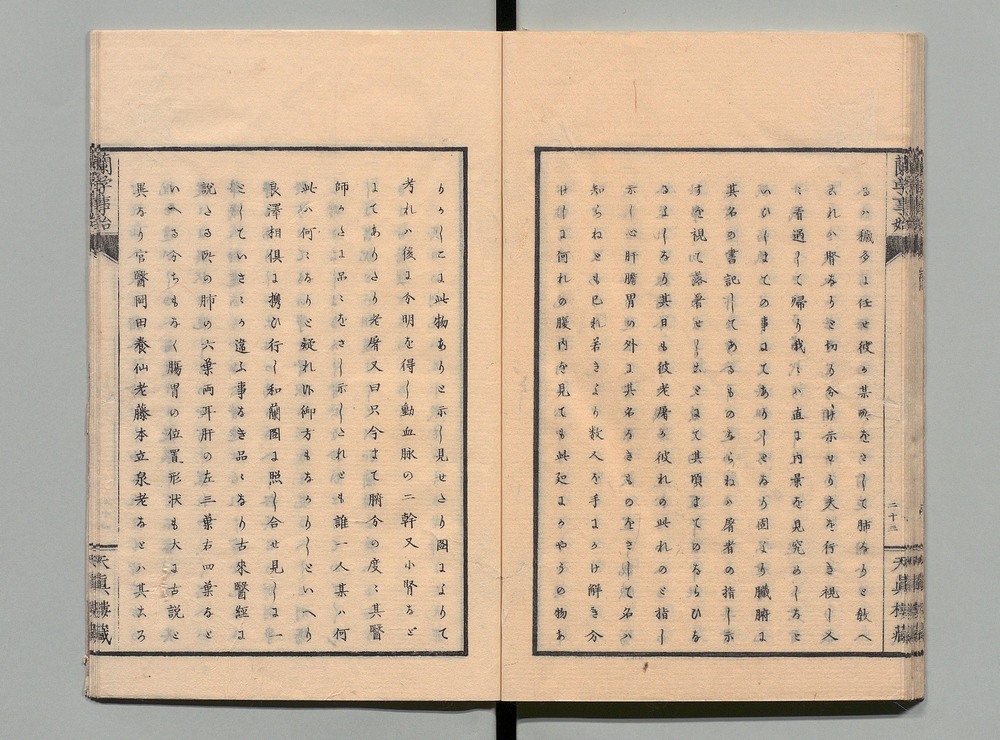 蘭學事始
二十三
天真樓藏
るハ穢多に任せ彼か某所をさして肺なりと教へ
これハ腎なりと切り分け示せり夫を行き視し人
々看過して帰り我々ハ直に内景を見究めしなと
いひしまての事にてありしとなり固より臓腑に
其名の書記してあるものならねハ屠者の指し示
すを視て落着せしことにて其頃まてのならひな
るよしなり其日も彼老屠か彼れの此れのと指し
示し心肝膽胃の外に其名なきものをさして名ハ
知らねとも己れ若きより数人を手にかけ解き分
けしに何れの腹内を見ても此処にかやうの物あ
りかしこに此物ありと示し見せたり圖によりて
考れハ後に分明を得し動血脈の二幹又小腎なと
にてありたり老屠又曰只今まて腑分の度々其醫
師かたに品々をさし示したれとも誰一人某ハ何
此ハ何々なりと疑れ候御方もなかりしといへり
良澤相倶に携ひ行し和蘭圖に照し合せ見しに一
としていさゝか違ふ事なき品々なり古來醫經に
説きたる所の肺の六葉両耳肝の左三葉右四葉なと
いへる分ちもなく腸胃の位置形状も大に古説と
異なり官醫岡田養仙老藤本立泉老なとハ其ころ
蘭學事始
天真樓藏